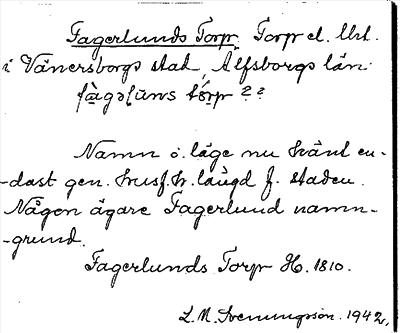 Fagerlunds Torp. Torp el. Urt.
i Vänersborgs stad, Älfsborgs län.
fàgəɭu̇ns tórp ??
Namn o. läge nu känt en-
-dast gen. husf.h. längd f. staden.
Någon ägare Fagerlund namn-
-grund.
Fagerlunds Torp H. 1810.
L. M. Svenungsson. 1942.